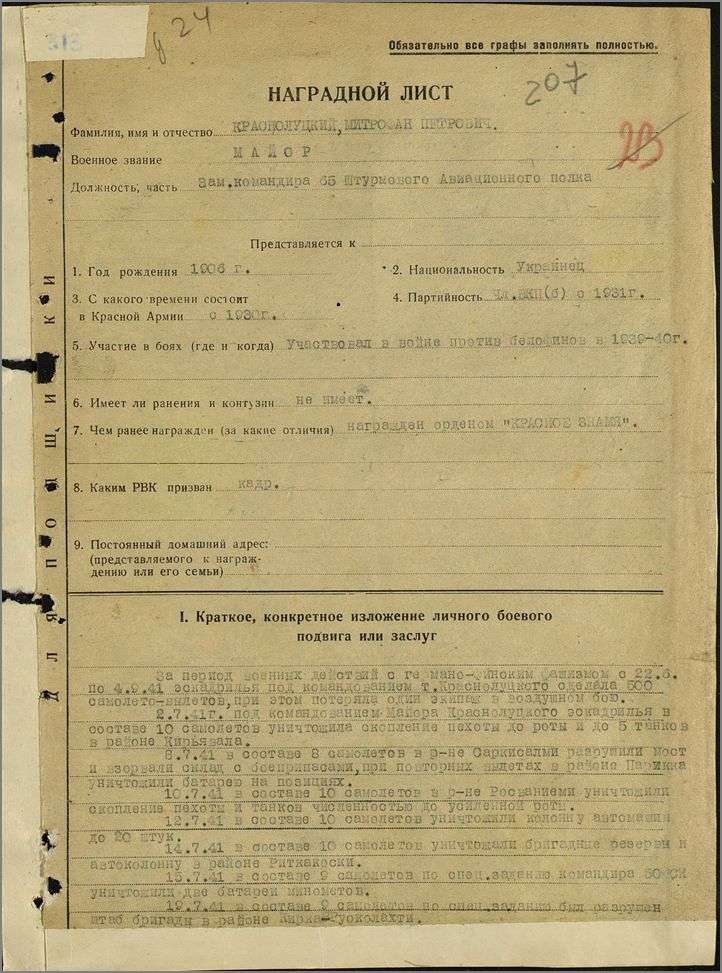 24
Обязательно все графы заполнять полностью.
207
НАГРАДНОЙ ЛИСТ
Фамилия, имя и отчество КРАСНОЛУЦКИЙ, МИТРОФАН ПЕТРОВИЧ.
Военное звание МАЙОР
Должность, часть Зам.командира 65 Штурмового Авиационного полка
Представляется к
1. Год рождения 1906 г.
2. Национальность Украинец
3. С какого времени состоит
в Красной Армии с 1930г.
4. Партийность Чл.ВКП(б) с 1931г.
5. Участие в боях (где и когда) Участвовал в война против белофинов в 1939-40г.
6. Имеет ли ранения и контузии не имеет.
7. Чем ранее награжден (за какие отличия) награжден орденом "КРАСНОЕ ЗНАМЯ".
8. Каким РВК призван кадр.
9. Постоянный домашний адрес:
(представляемого к награж-
дению или его семьи)
Для подшивки
I. Краткое, конкретное изложение личного боевого
подвига или заслуг
За период военных действий с ге мано-финским фашизмом с 22.6.
по 4.9.41 эскадрилья под командованием т.Краснолуцкого сделала 500
самолето-вылетов, при этом потеряла один экипаж в воздушном бою.
2.7.41г. под командованием Майора Краснолуцкого эскадрилья в
составе 10 самолетов уничтожила скопление пехоты до роты и до 5 танков
в районе Кирьявала.
8.7.41 в составе 8 самолетов в р-не Саркисалми разрушили мост
и взорвали склад с боеприпасами, при повторных вылетах в районе
уничтожили батарею на позициях.
10.7.41 в составе 10 самолетов в р-не уничтожили
скопление пехоты и танков численностью до усиленной роты.
12.7.41 в составе 10 самолетов уничтожили колонну автомашин
до 20 штук.
14.7.41 в составе 10 самолетов уничтожали бригадные резервы и
автоколонну в районе Риткакоски.
15.7.41 в составе 9 самолетов по спец.заданию командира 50
уничтожили две батареи минометов.
19.7.41 в составе 9 самолетов по спец.заданию был разрушен
штаб бригады в районе